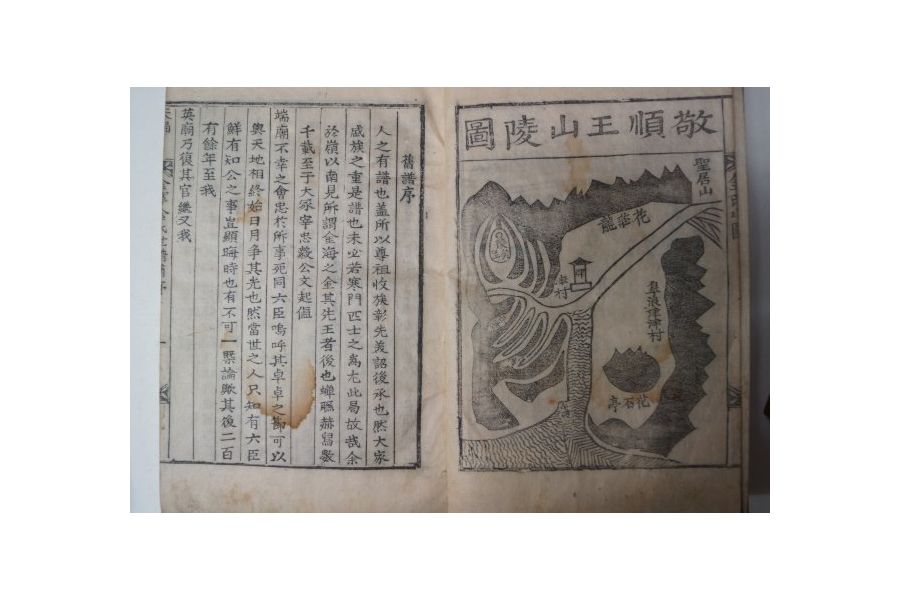 敬順王山陵圖
聖居山
花莊龍
皐浪津村
花石亭
舊譜序
人之有譜也盖所以尊祖收族彰先美詔後承也然大家
盛族之重是譜也未必若寒門匹士之爲尤此曷故哉余
於嶺以南見所謂金海之金其先王者後也蟬聯赫舃數
千載至于大冢宰忠毅公文起値
端廟不幸之會忠於所事死同六臣嗚呼其卓卓之節可以
與天地相終始日月争其光也然當世之人只知有六臣
鮮有知公之事豈顯晦時也有不可一槩論歟其後二百
有餘年至我
英廟乃復其官繼又我